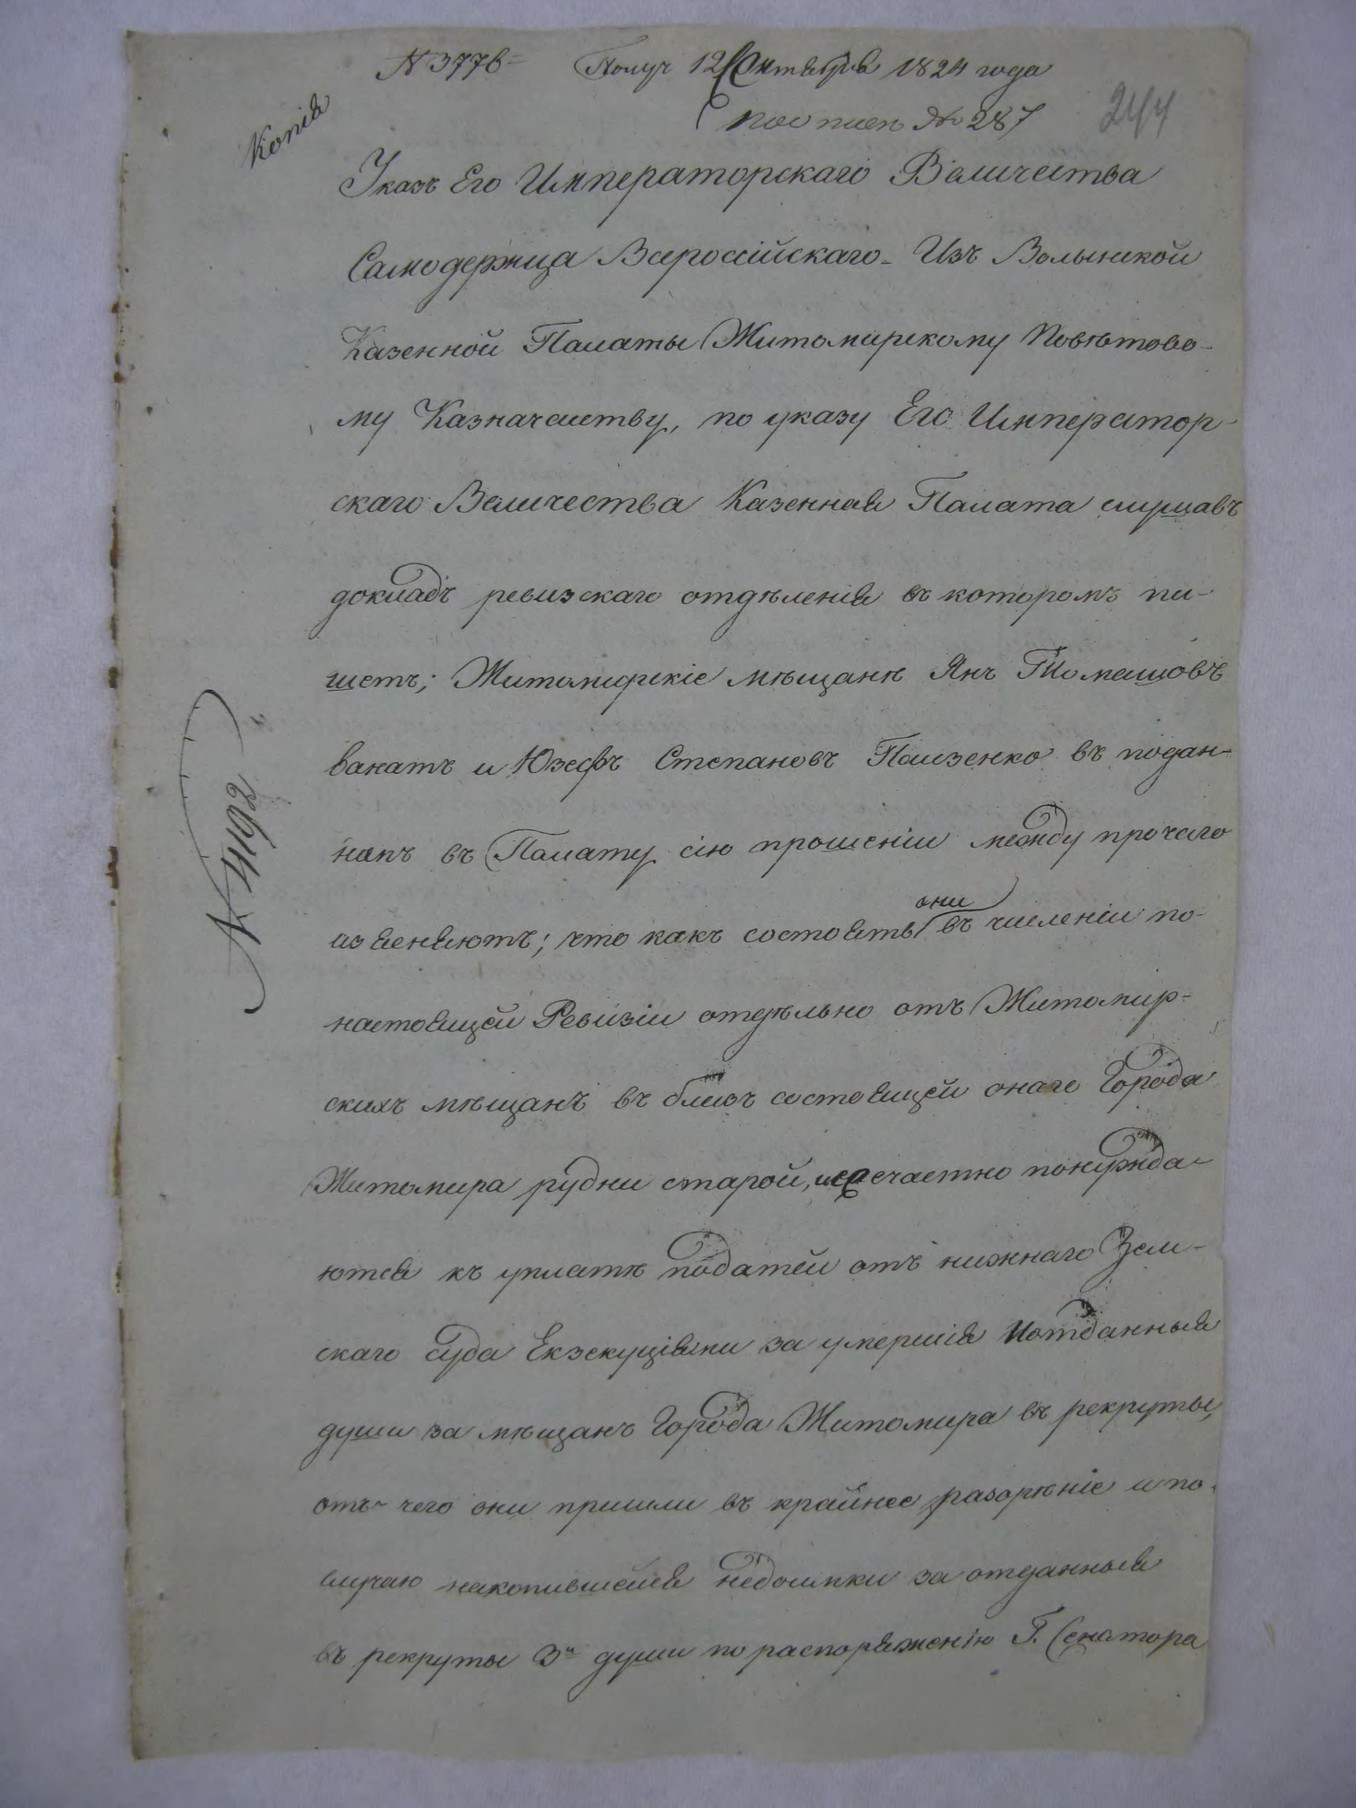 N 3776 Получ 12 Октября 1824 года
Копія
№ 287
244
Указъ Его Императорскаго Величества
Самодержца Всероссійскаго Изъ Волынской
Казенной Палаты Житомирскому Повѣтово-
му Казначейству, по указу Его Император-
скаго Величества Казенная Палата слушавъ
докладъ ревизскаго отдѣленія въ которомъ пи-
шетъ; Житомирскіе мѣщанѣ Янъ Томашовъ
и Юзефъ Степановъ въ подан-
номъ въ Палату сію прошеніи между прочаго
изъясняютъ; что какъ состоятъ они въ численіи по-
настоящей Ревизіи отдѣльно отъ Житомир-
скихъ мѣщанъ въ близъ состоящей онаго Города
Житомира рудни старой, понужда-
ются къ уплатѣ податей отъ нижнаго Зем-
скаго суда Екзекуціями за умершія и отданныя
души за мѣщанъ Города Житомира въ рекруты,
отъ чего они пришли въ крайнее разорѣніе и по
случаю накопившейся недоимки за отданныя
въ рекруты 3и души по распоряженію Г. Сенатора
N 4192